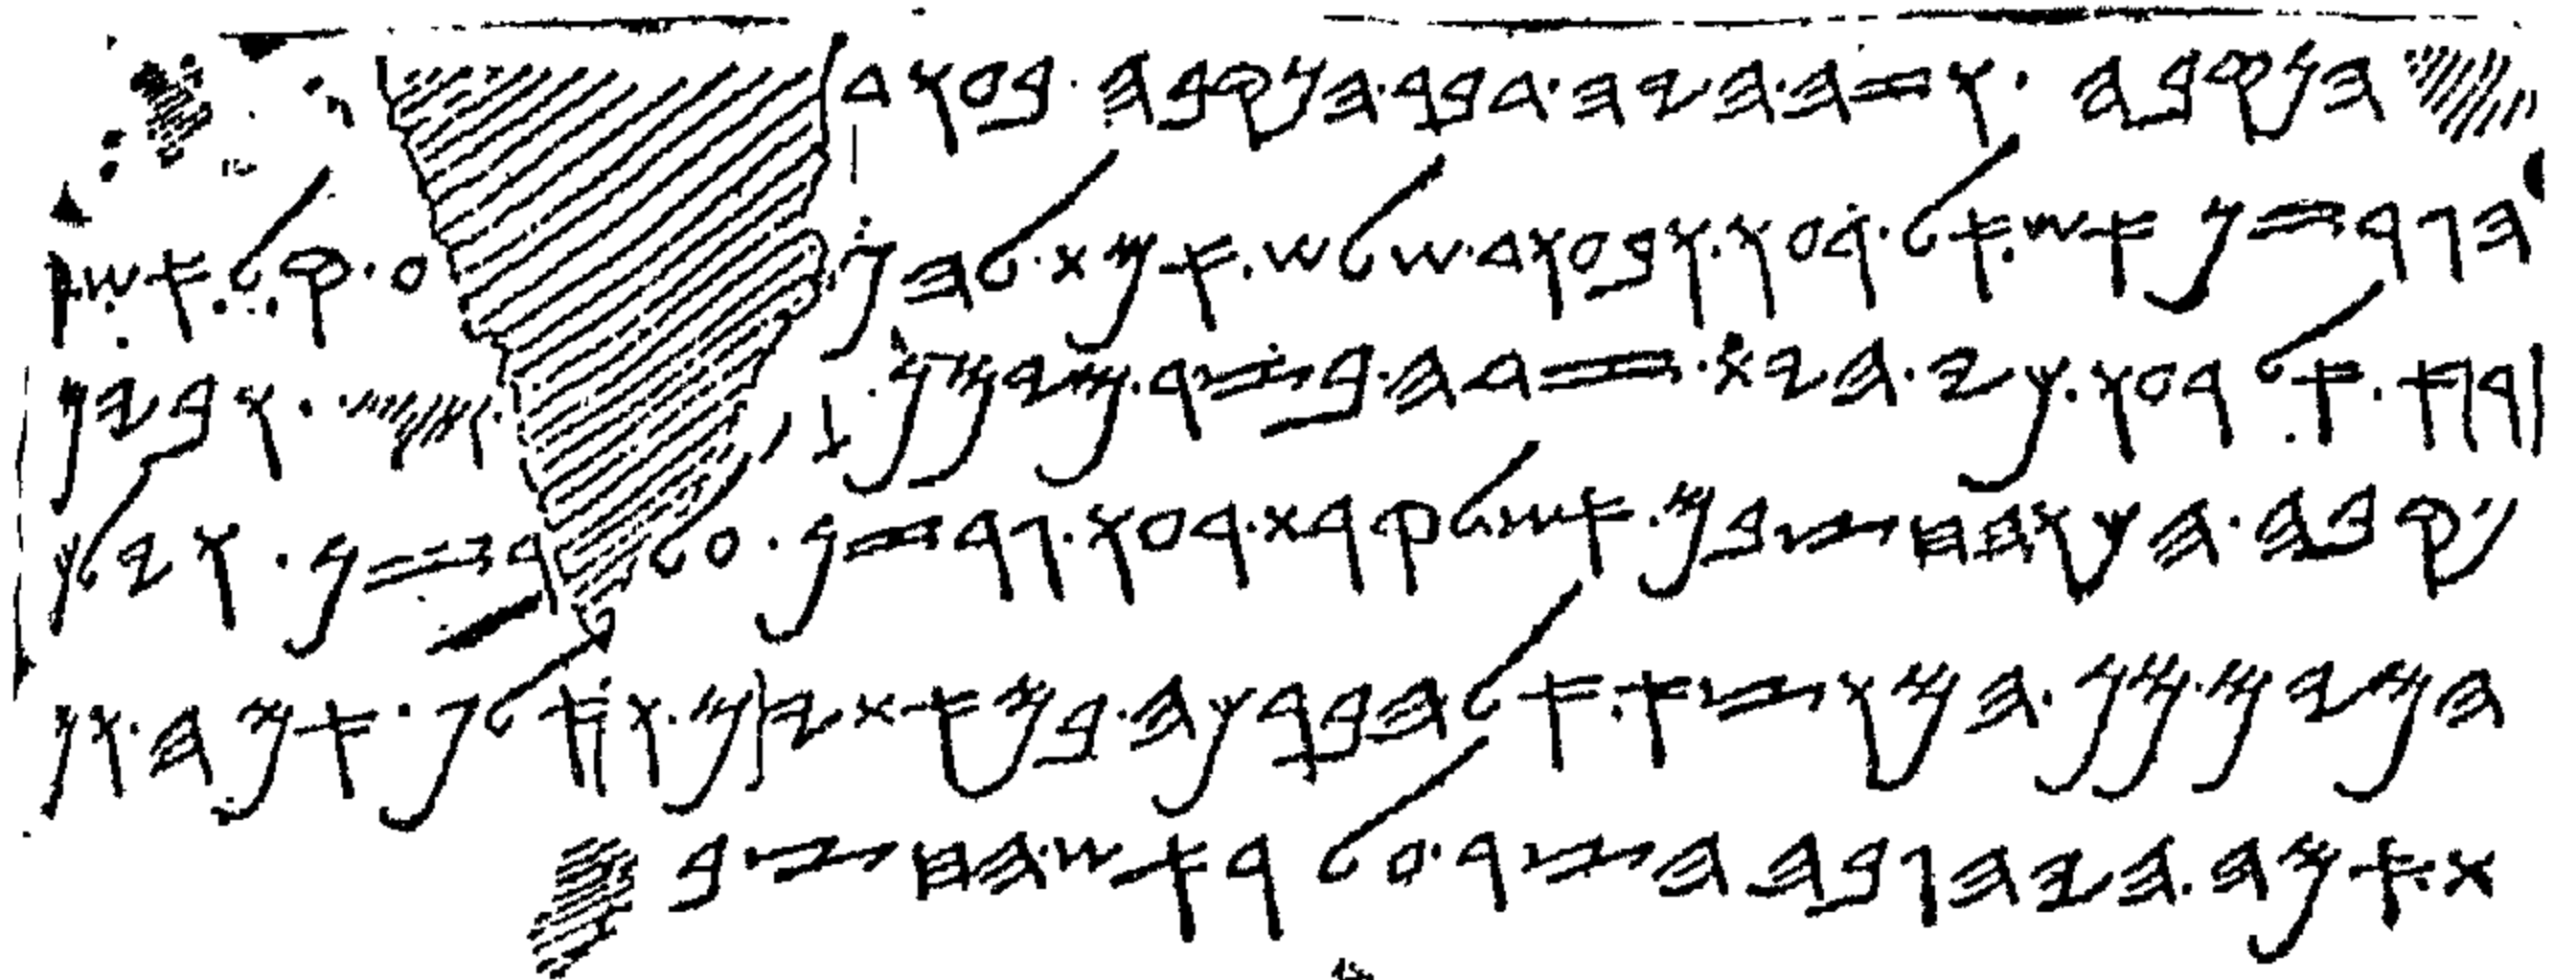 𐤄𐤍𐤒𐤁𐤄 . 𐤅𐤆𐤄 . 𐤄𐤉𐤄 . 𐤃𐤁𐤓 . 𐤄𐤍𐤒𐤁𐤄 . 𐤁𐤏𐤅𐤃
𐤄𐤂𐤓𐤆𐤍 . 𐤀𐤔 . 𐤀𐤋 . 𐤓𐤏𐤅 . 𐤅𐤁𐤏𐤅𐤃 . 𐤔𐤋𐤔 . 𐤀𐤌𐤕 . 𐤋𐤄𐤍 𐤏 . 𐤒𐤋 . 𐤀𐤔 . 𐤒
𐤓𐤀 . 𐤀𐤋 . 𐤓𐤏𐤅 . 𐤊𐤉 . 𐤄𐤉𐤕 . 𐤆𐤃𐤄 . 𐤁𐤑𐤓 . 𐤌𐤉𐤌𐤍 . 𐤅𐤁𐤉𐤌 . 𐤄
𐤍𐤒𐤁𐤄 . 𐤄𐤊𐤅 . 𐤄𐤇𐤑𐤁𐤌 . 𐤀𐤔 . 𐤋𐤒𐤓𐤕 . 𐤓𐤏𐤅 . 𐤂𐤓𐤆𐤍 . 𐤏𐤋 . 𐤂𐤓𐤆𐤍 . 𐤅𐤉𐤋𐤊𐤅
𐤄𐤌𐤉𐤌 . 𐤌𐤍 . 𐤄𐤌𐤅𐤑𐤀 . 𐤀𐤋 . 𐤄𐤁𐤓𐤊𐤄 . 𐤁𐤌𐤀𐤕𐤉𐤌 . 𐤅𐤀𐤋𐤐 . 𐤀𐤌𐤄 . 𐤅𐤌𐤀
𐤕 . 𐤀𐤌𐤄 . 𐤄𐤉𐤄 . 𐤂𐤁𐤄 . 𐤄𐤑𐤓 . 𐤏𐤋 . 𐤓𐤀𐤔 . 𐤄𐤇𐤑𐤁